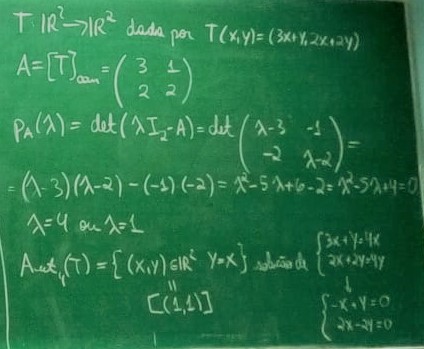 T: ℝ² → ℝ² dada por T(x,y)=(3x+y,2x+2y)
A=[T]can=(3 1
2 2)
p_A(λ) = det(λI₂-A)=det (λ-3 -1
-2 λ-2) =
= (λ-3)(λ-2) - (-1)(-2) = λ²-5λ+6-2=λ²-5λ+4=0
λ=4 ou λ=1
Aut₄(T) = {(x,y)∈ℝ² y=x} solução de {3x+y=4x
2x+2y=4y
=
[(1,1)]
↓
{-x+y=0
2x-2y=0